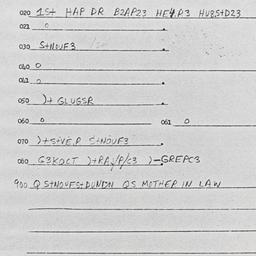 020 1S+ HAP DR B2AP23 HE4R3 HU8S+D23
021 0
030 S+NOUF3
040 0
041 0
050 )+ GLUGSR
060 0 061 0
070 )+S+VE,R S+NOUF3
080 G3KOCT )+RA//P/C3 )-GREPC3
900 Q S+NOUFS+DUNDN QS MOTHER IN LAW